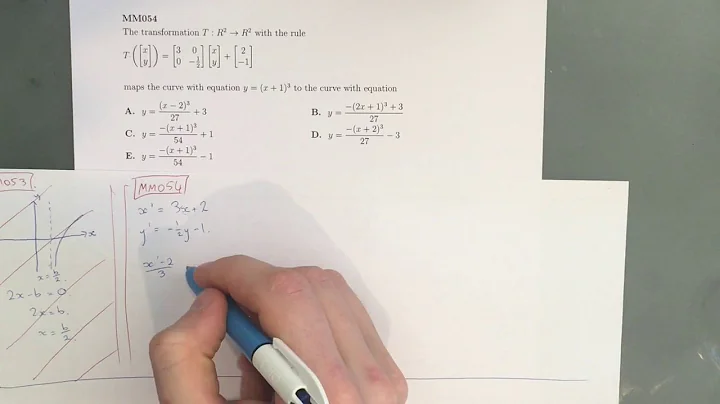 MM054
The transformation T : R² → R² with the rule
T([x y]) = [3 0 0 -1/2][x y] + [2 -1]
maps the curve with equation y = (x + 1)³ to the curve with equation
A. y = (x − 2)³/27 + 3
B. y = −(2x + 1)³ + 3/27
C. y = −(x + 1)³/54 + 1
D. y = −(x + 2)³/27 − 3
E. y = −(x + 1)³/54 − 1
M053.
x
x = b/2
2x-b = 0.
2x = b.
x = b/2
MM054
x' = 3x+2
y' = -1/2y-1.
x'-2/3